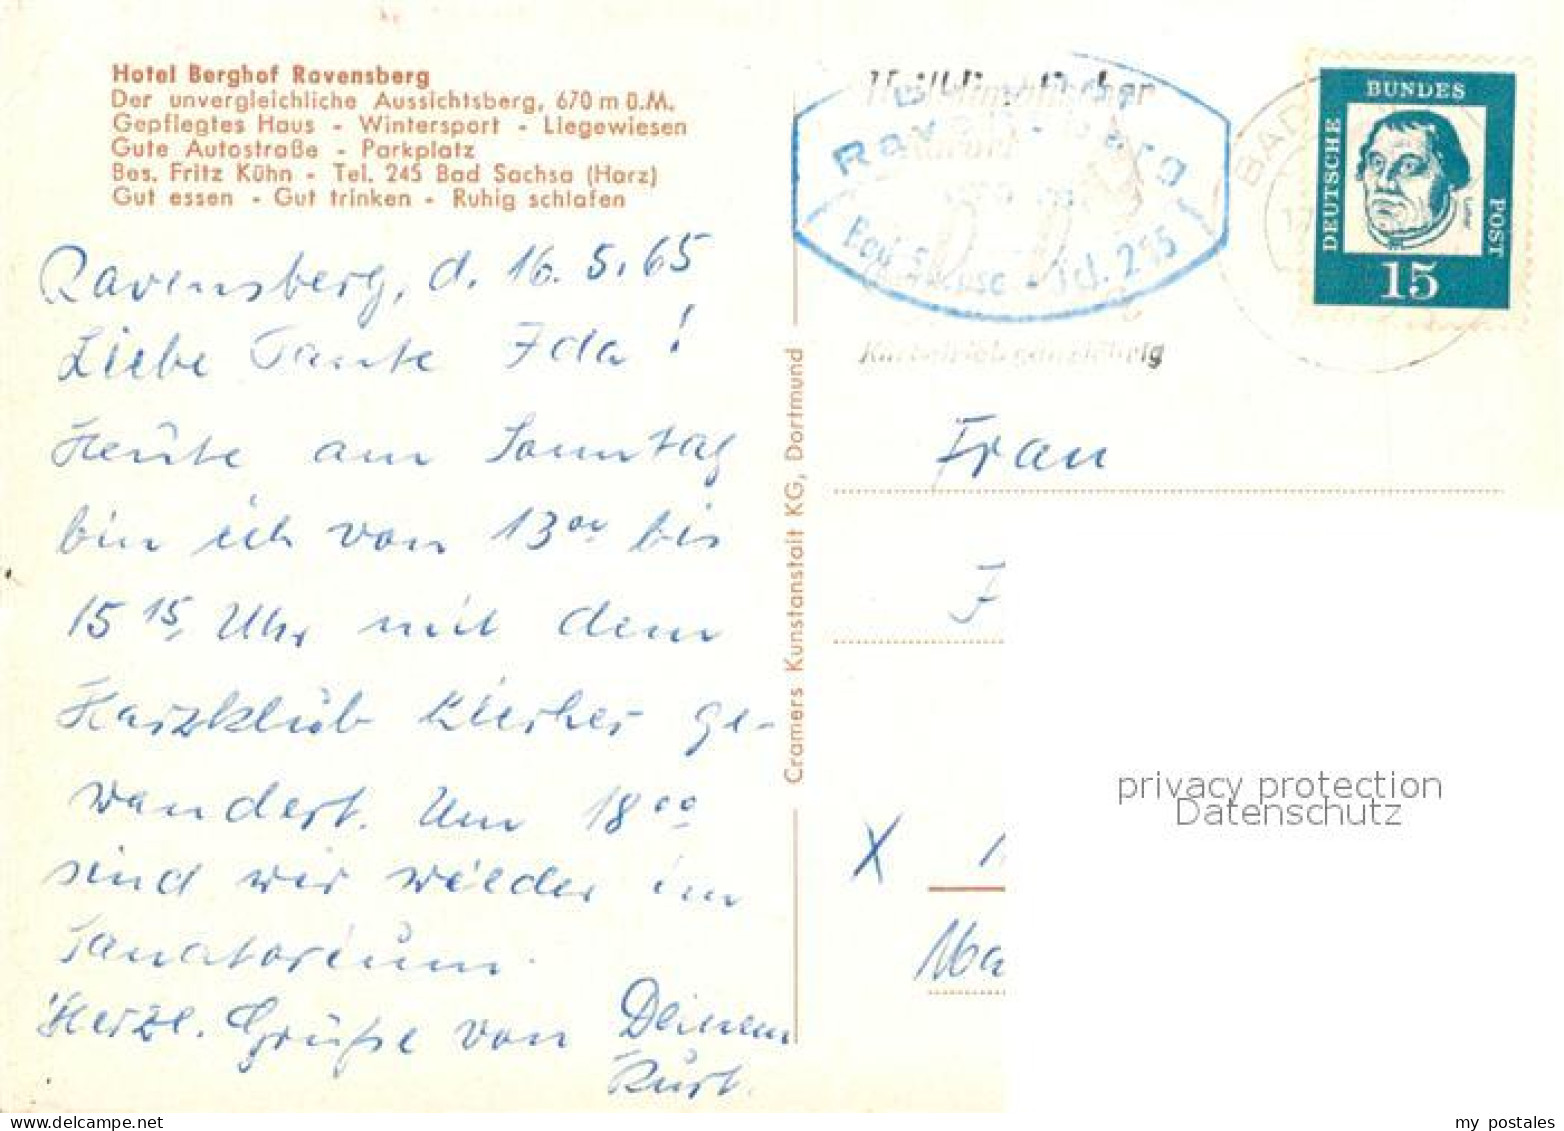 Hotel Berghof Ravensberg
Der unvergleichliche Aussichtsberg, 670 m ü.M.
Gepflegtes Haus - Wintersport - Liegewiesen
Gute Autostraße - Parkplatz
Bes. Fritz Kühn - Tel. 245 Bad Sachsa (Harz)
Gut essen - Gut trinken - Ruhig schlafen
Ravensberg, d. 16.5.65
Liebe Tante Ida!
Heute am Sonntag
bin ich von 13⁰⁰ bis
15¹⁵ Uhr mit dem
Harzklub hierher ge-
wandert. Um 18⁰⁰
sind wir wieder im
Sanatorium.
Herzl. Grüße von Deinem
Kurt.
Cramers Kunstanstalt KG, Dortmund
Heilklimatischer
Ravensberg
Tel. 245
Kurbetrieb ganzjährig
BAD
DEUTSCHE
BUNDES
POST
Luther
15
Frau
F
X
Ma
privacy protection
Datenschutz
my postales